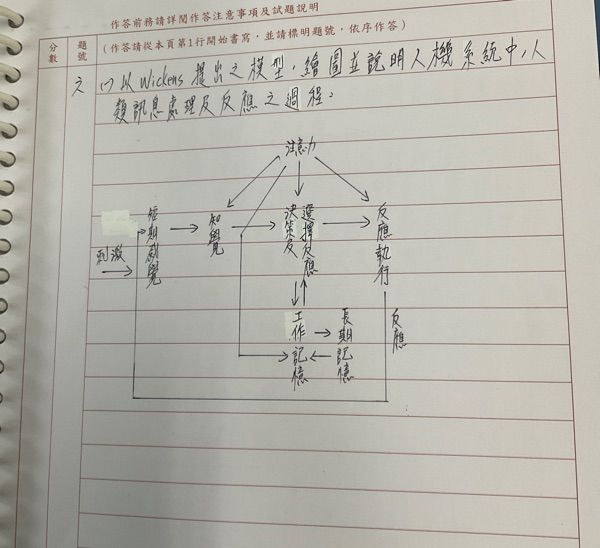 作答前務請詳閱作答注意事項及試題說明
分數
題號
(作答請從本頁第1行開始書寫,並請標明題號,依序作答)
(一)以Wickens提出之模型,繪圖並說明人機系統中,人
類訊息處理及反應之過程。
注意力
刺激
短期感覺
知覺
決策及
選擇反應
反應執行
工作記憶
長期記憶
反應